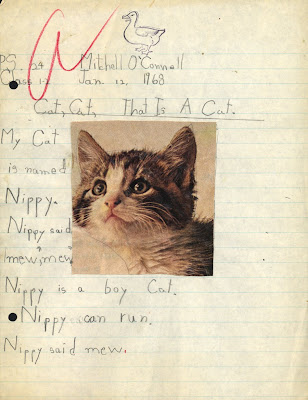 A
P.S. 24 Mitchell O'Connell
Class 1-2 Jan. 12, 1968
Cat, Cat, That Is A Cat.
My Cat
is named
Nippy.
Nippy said
"mew, mew"
Nippy is a boy Cat.
Nippy can run.
Nippy said mew.